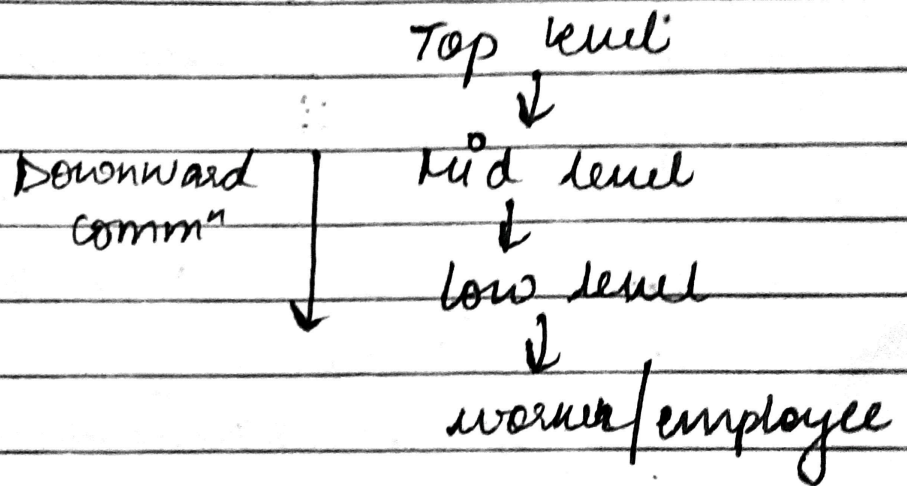 Top level
↓
Downward
commⁿ
Mid level
↓
low level
↓
worker/employee